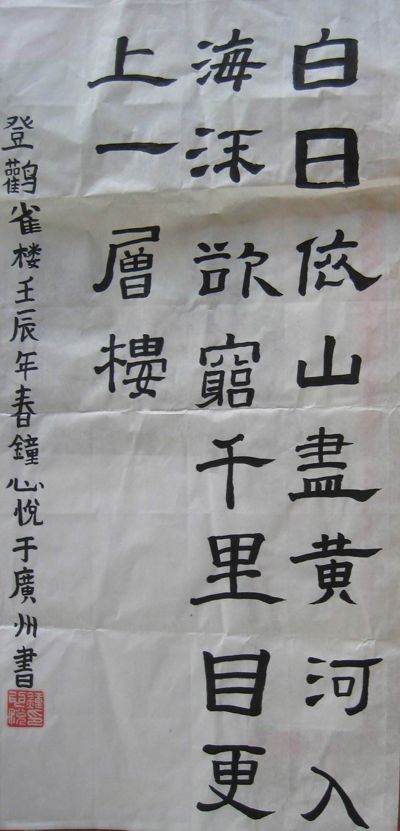 白日依山盡黄河入
海流欲窮千里目更
上一層樓
登鸛雀楼壬辰年春鐘心悅于廣州書